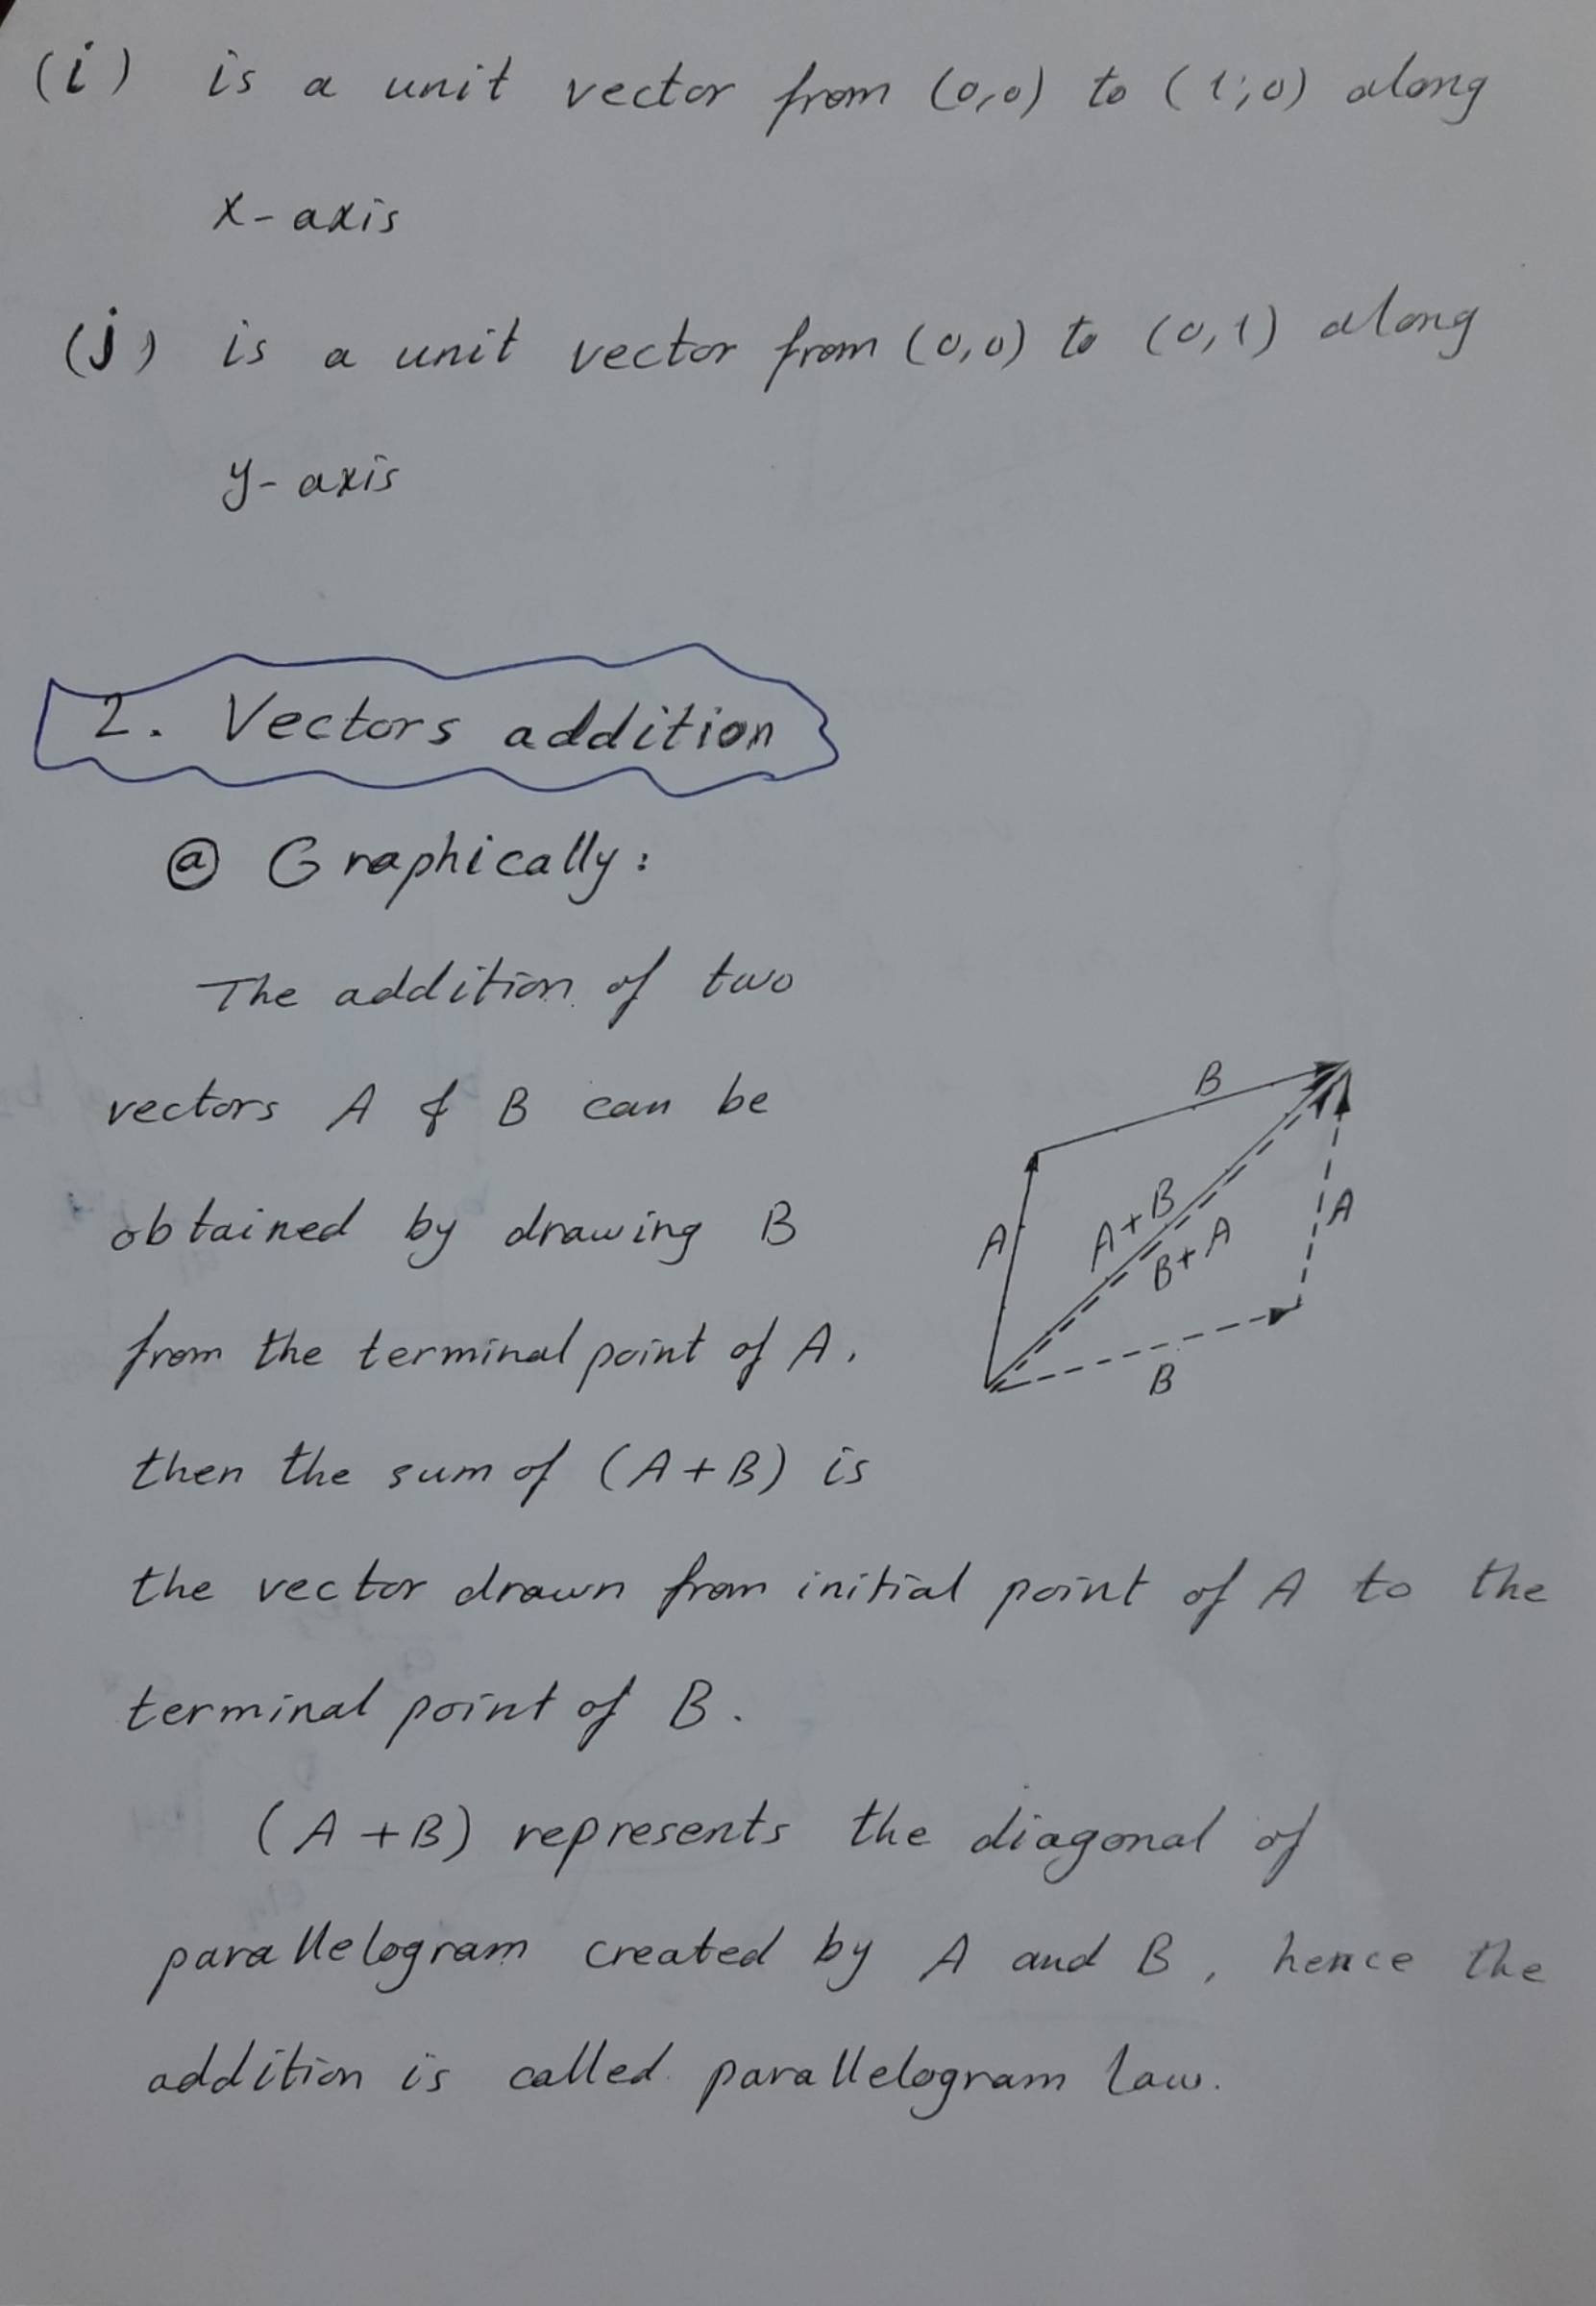 (i) is a unit vector from (0,0) to (1,0) along
x-axis
(j) is a unit vector from (0,0) to (0,1) along
y-axis
2. Vectors addition
ⓐ Graphically:
The addition of two
vectors A & B can be
obtained by drawing B
from the terminal point of A.
then the sum of (A+B) is
the vector drawn from initial point of A to the
terminal point of B.
B
A
A+B
B+A
A
B
(A+B) represents the diagonal of
parallelogram created by A and B, hence the
addition is called parallelogram law.